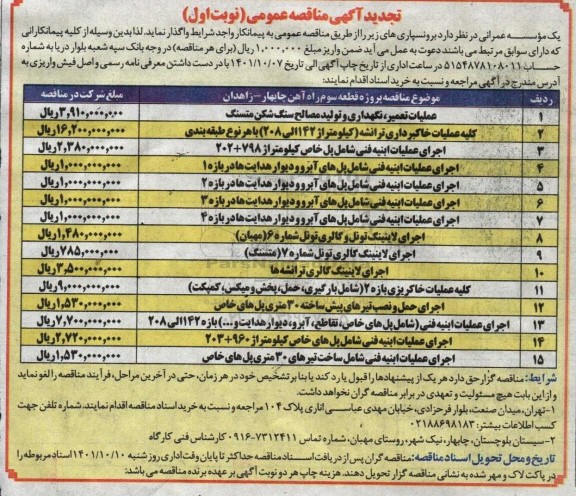 تجدید آگهی مناقصه عمومی (نوبت اول)
یک مؤسسه عمرانی در نظر دارد برونسپاری های زیر را از طریق مناقصه عمومی به پیمانکار واجد شرایط واگذار نماید. لذا بدین وسیله از کلیه پیمانکارانی
که دارای سوابق مرتبط می باشند دعوت به عمل می آید ضمن واریز مبلغ ۱,۰۰۰,۰۰۰ ریال (برای هر مناقصه) در وجه بانک سپه شعبه بلوار دریا به شماره
حساب ۵۱۵۴۸۷۸۱۰۸۰۱۱ در ساعت اداری از تاریخ چاپ آگهی الی تاریخ ۱۴۰۱/۱۰/۰۷ با در دست داشتن معرفی نامه رسمی و اصل فیش واریزی به
آدرس مندرج در آگهی مراجعه و نسبت به خرید اسناد اقدام نمایند:
ردیف موضوع مناقصه پروژه قطعه سوم راه آهن چابهار - زاهدان مبلغ شرکت در مناقصه
۱ عملیات تعمیر، نگهداری و تولید مصالح سنگ شکن متسنگ ۳,۹۱۰,۰۰۰,۰۰۰ ریال
۲ کلیه عملیات خاکبرداری ترانشه (کیلومتراژ ۱۴۲ الی ۲۰۸) با هر نوع طبقه بندی ۱۶,۲۰۰,۰۰۰,۰۰۰ ریال
۳ اجرای عملیات ابنیه فنی شامل پل خاص کیلومتراژ ۷۹۸+۲۰۲ ۲,۳۸۰,۰۰۰,۰۰۰ ریال
۴ اجرای عملیات ابنیه فنی شامل پل های آبرو و دیوار هدایت ها در بازه ۱ ۱,۰۰۰,۰۰۰,۰۰۰ ریال
۵ اجرای عملیات ابنیه فنی شامل پل های آبرو و دیوار هدایت ها در بازه ۲ ۱,۰۰۰,۰۰۰,۰۰۰ ریال
۶ اجرای عملیات ابنیه فنی شامل پل های آبرو و دیوار هدایت ها در بازه ۳ ۱,۰۰۰,۰۰۰,۰۰۰ ریال
۷ اجرای عملیات ابنیه فنی شامل پل های آبرو و دیوار هدایت ها در بازه ۴ ۱,۰۰۰,۰۰۰,۰۰۰ ریال
۸ اجرای لاینینگ تونل و گالری تونل شماره ۶ (مهبان) ۱,۴۸۰,۰۰۰,۰۰۰ ریال
۹ اجرای لاینینگ گالری تونل شماره ۷ (متسنگ) ۷۸۵,۰۰۰,۰۰۰ ریال
۱۰ اجرای لاینینگ گالری ترانشه ها ۳,۵۰۰,۰۰۰,۰۰۰ ریال
۱۱ کلیه عملیات خاکریزی بازه ۲ (شامل بارگیری، حمل، پخش و میکس، کمپکت) ۹,۰۰۰,۰۰۰,۰۰۰ ریال
۱۲ اجرای حمل و نصب تیرهای پیش ساخته ۳۰ متری پل های خاص ۱,۵۳۰,۰۰۰,۰۰۰ ریال
۱۳ اجرای عملیات ابنیه فنی (شامل پل های خاص، تقاطع، آبرو، دیوار هدایت و...) بازه ۱۴۲ الی ۲۰۸ ۷,۷۰۰,۰۰۰,۰۰۰ ریال
۱۴ اجرای عملیات ابنیه فنی شامل پل های خاص کیلومتراژ ۹۶۰+۲۰۳ ۲,۷۲۰,۰۰۰,۰۰۰ ریال
۱۵ اجرای عملیات ابنیه فنی شامل ساخت تیرهای ۳۰ متری پل های خاص ۱,۵۳۰,۰۰۰,۰۰۰ ریال
شرایط: مناقصه گزار حق دارد هر یک از پیشنهادها را قبول یا رد کند یا بنا بر تشخیص خود در هر زمان، حتی در آخرین مراحل، فرآیند مناقصه را لغو نماید
و از این بابت هیچ مسئولیت و تعهدی در برابر مناقصه گران نخواهد داشت.
۱-تهران، میدان صنعت، بلوار فرحزادی، خیابان مهدی عباسی اناری پلاک ۱۰۴ مراجعه و نسبت به خرید اسناد مناقصه اقدام نمایند. شماره تلفن جهت
کسب اطلاعات بیشتر: ۰۲۱۸۸۶۹۸۱۸۳
۲-سیستان بلوچستان، چابهار، نیک شهر، روستای مهبان، شماره تماس ۷۳۱۲۴۱۱-۰۹۱۶ کارشناس فنی کارگاه
تاریخ و محل تحویل اسناد مناقصه: مناقصه گران پس از دریافت اسناد مناقصه حداکثر تا پایان وقت اداری روز شنبه ۱۴۰۱/۱۰/۱۰ اسناد مربوطه را
در پاکت لاک و مهر شده به نشانی مناقصه گزار تحویل دهند. هزینه چاپ هر دو نوبت آگهی بر عهده برنده مناقصه می باشد.